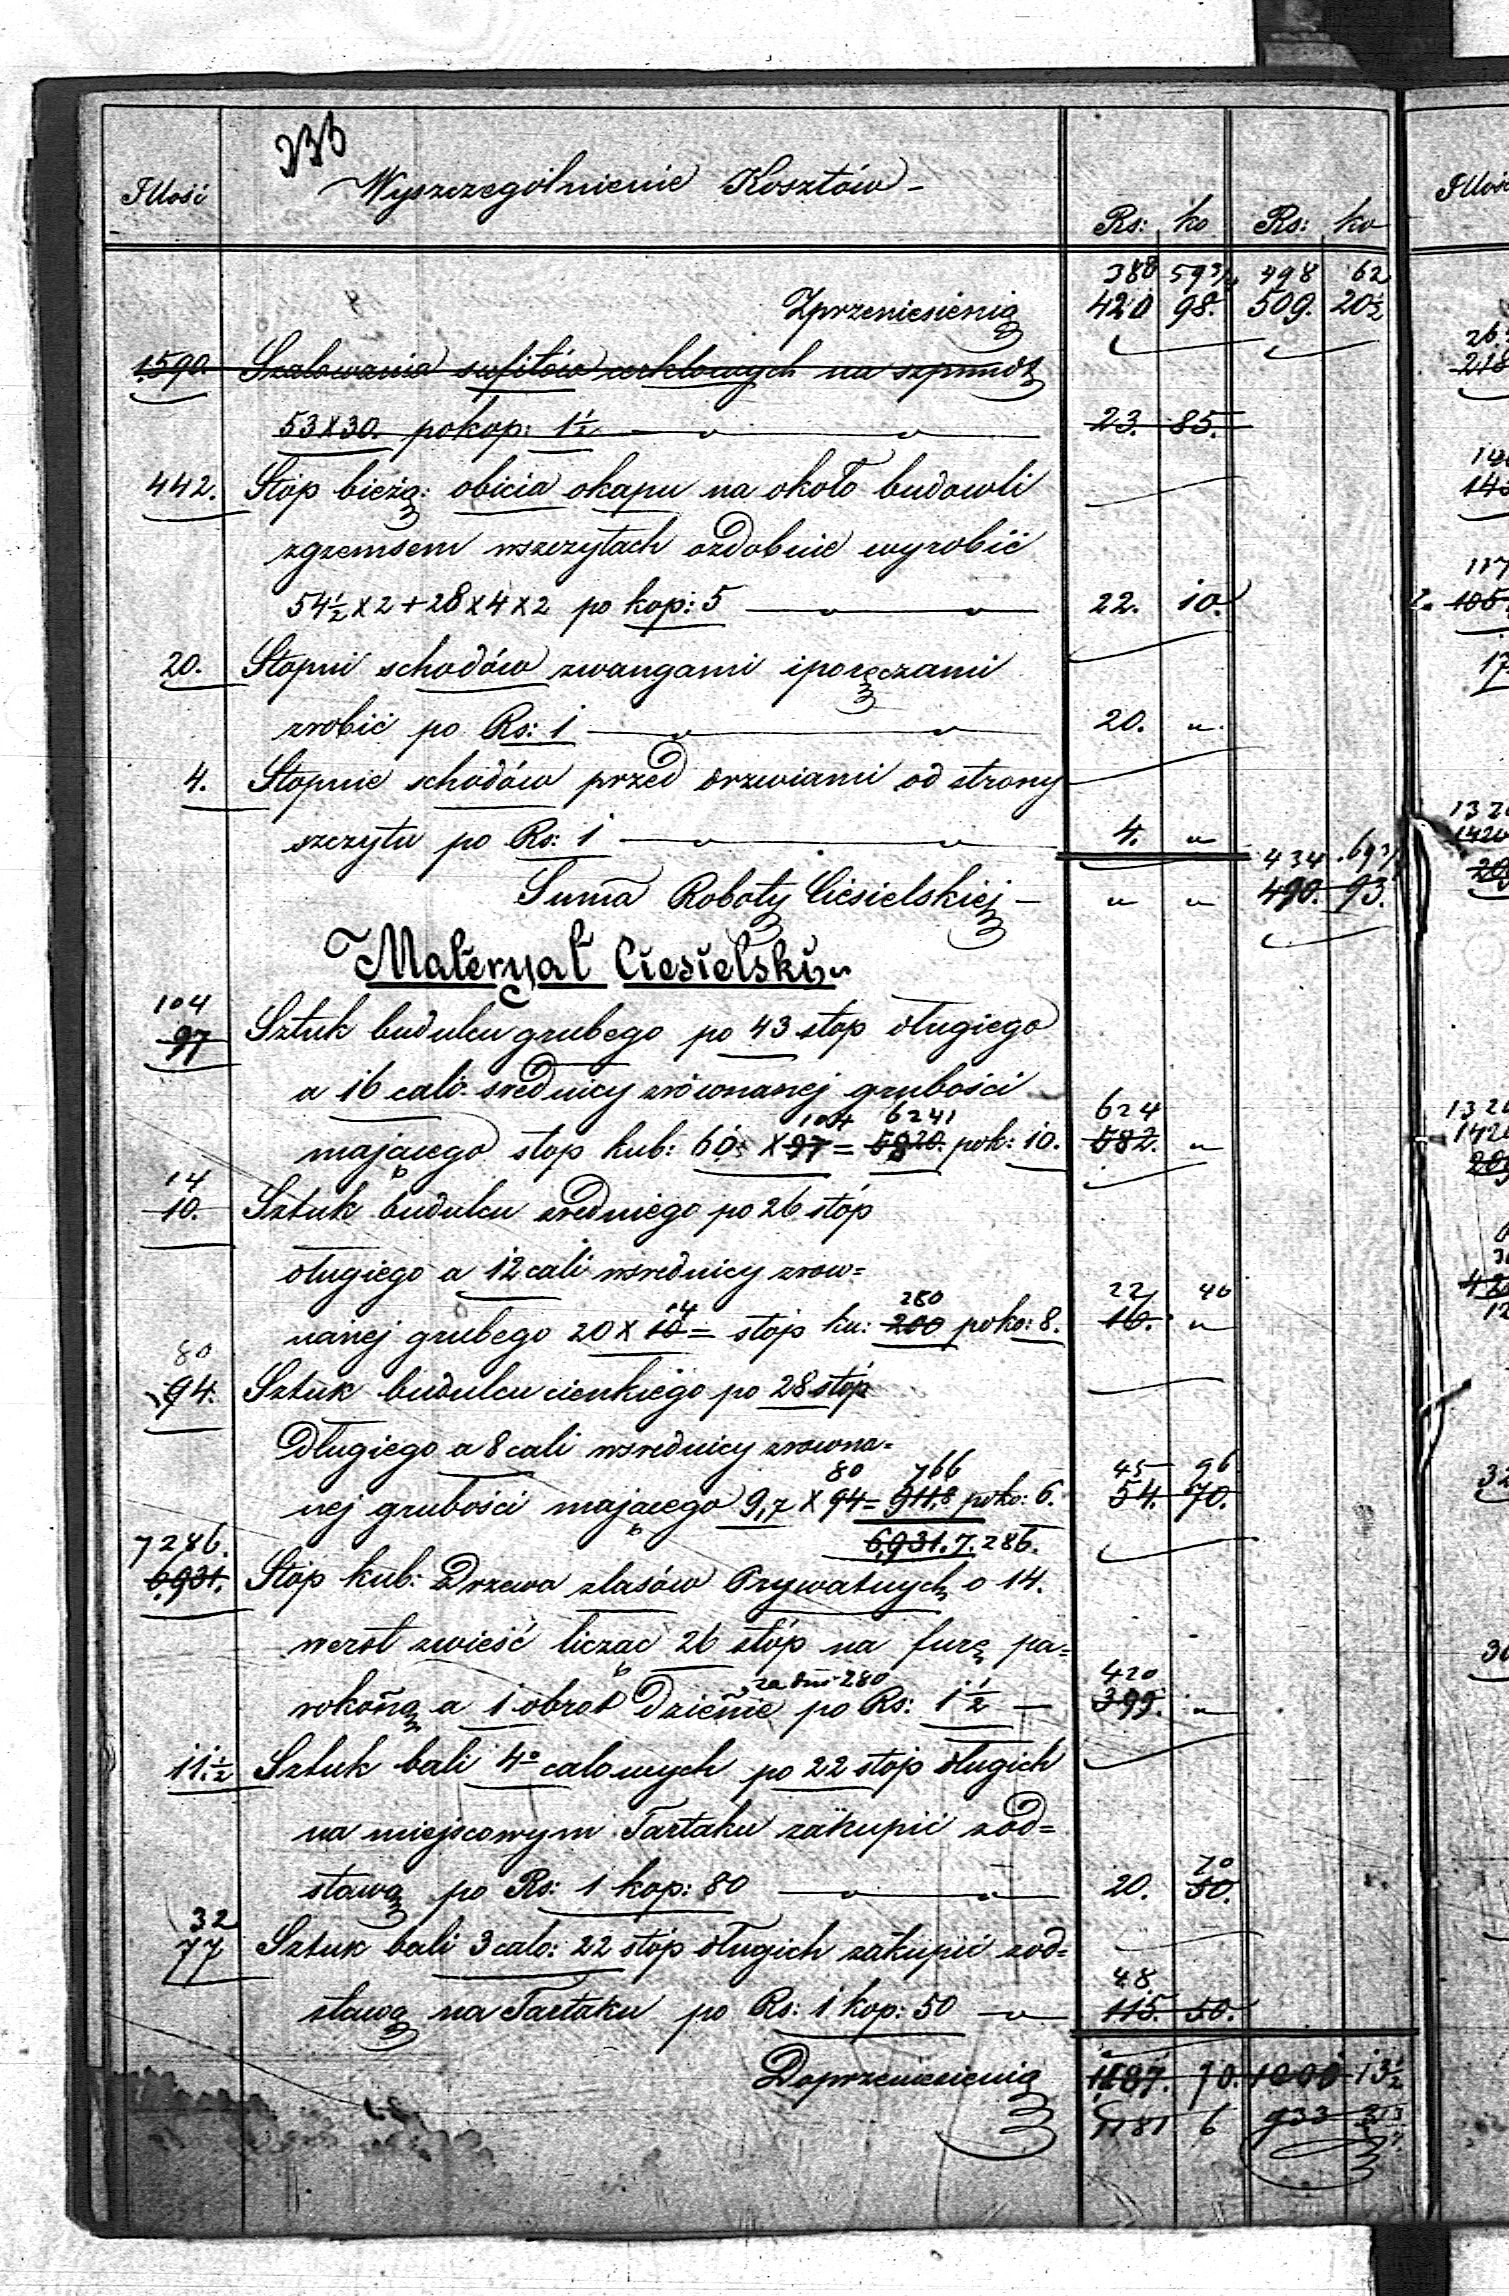 233
Illość Wyszczególnienie Kosztów - Rs: ko Rs: ko
388 59 3/4 498 62
Zprzeniesienia 420 98. 509. 20 1/2
1590. Szalowania sufitów werklowych na szpundt
53 x 30. po kop: 1 1/2 23. 85.
442. Stóp bieżą: obicia okapu na około budowli
zgzemsem wszczytach ozdobnie wyrobić
54 1/2 x 2 + 28 x 4 x 2 po kop: 5 22. 10.
20. Stopni schodów zwangami iporęczami
zrobić po Rs: 1 20. "
4. Stopnie schodów przed drzwiami od strony
szczytu po Rs: 1 4. "
434 69 3/4
Suma Roboty Ciesielskiej - " " 490. 93.
Materyał Ciesielski
104
97 Sztuk budulcu grubego po 43 stop długiego
a 16 cali srednicy zrównanej grubości
104 6241 624
mającego stop kub: 60 x 97 = 5820. pok: 10. 582. "
14
10. Sztuk budulcu średniego po 26 stóp
długiego a 12 cali wsrednicy zrow=
14 280 22 40
nanej grubego 20 x 10 = stóp ku: 200 po ko: 8. 16. "
80
94. Sztuk budulcu cienkiego po 28 stóp
Długiego a 8 cali wsrednicy zrowna=
80 766 45 96
nej grubości mającego 9,7 x 94 = 911,8 po ko: 6. 54. 70.
6,931. 7.286.
7286.
6,931. Stóp kub: Drzewa zlasów Prywatnych o 14.
werst zwieść licząc 26 stóp na furę pa=
za dni 280 420
rokoną a 1 obrot Dzienie po Rs: 1 1/2 - 399. "
11 1/2 Sztuk bali 4o calowych po 22 stóp długich
na miejscowym Tartaku zakupić zod=
70
stawą po Rs: 1 kop: 80 20. 50.
32
77 Sztuk bali 3 calo: 22 stóp długich zakupić zod=
48
stawą na Tartaku po Rs: 1 kop: 50 115. 50.
Doprzeniesienia 1187. 70. 1000 13 1/2
1181 6 933